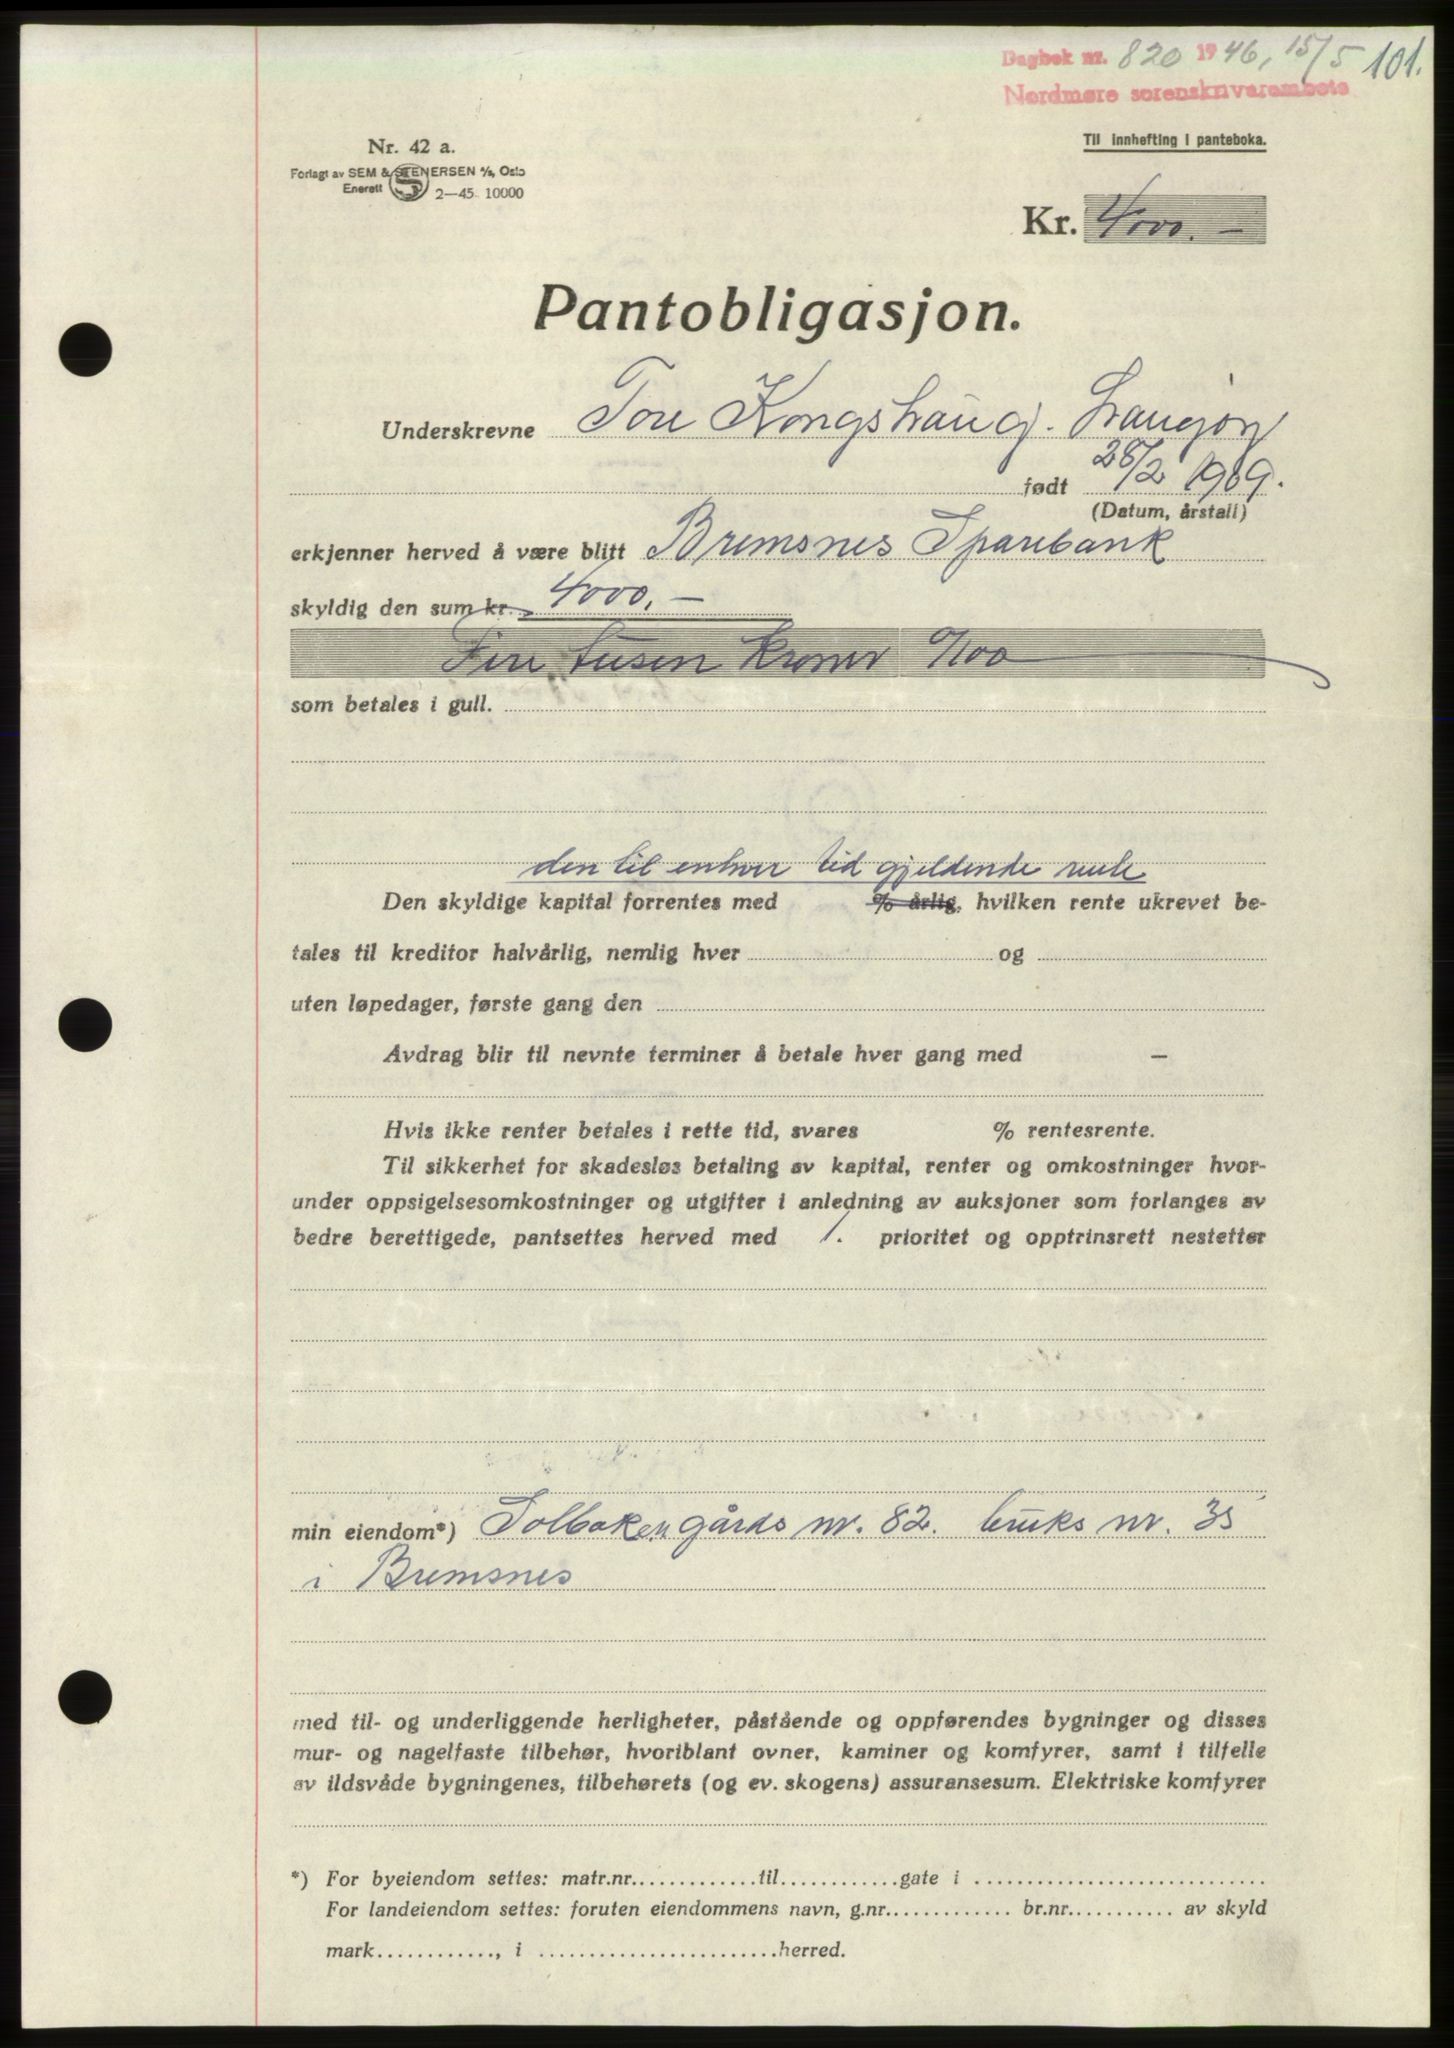 Dagbok nr. 820 1946, 15/5 101.
Nordmøre sorenskriverembete
Til innhefting i panteboka.
Nr. 42 a.
Forlagt av SEM & STENERSEN A/S, Oslo
Enerett 2—45. 10000
Kr. 4000.—
Pantobligasjon.
Underskrevne Tore Kongshaug. Langøy
født 28/2 1909.
(Datum, årstall)
erkjenner herved å være blitt Bremsnes Sparebank
skyldig den sum kr. 4000.—
Fire tusen kroner %oo
som betales i gull.
den til enhver tid gjeldende rente
Den skyldige kapital forrentes med % årlig, hvilken rente ukrevet be-
tales til kreditor halvårlig, nemlig hver og
uten løpedager, første gang den
Avdrag blir til nevnte terminer å betale hver gang med —
Hvis ikke renter betales i rette tid, svares % rentesrente.
Til sikkerhet for skadesløs betaling av kapital, renter og omkostninger hvor-
under oppsigelsesomkostninger og utgifter i anledning av auksjoner som forlanges av
bedre berettigede, pantsettes herved med 1. prioritet og opptrinsrett nestetter
min eiendom*) Solbakken gårds nr. 82. bruks nr. 35
i Bremsnes
med til- og underliggende herligheter, påstående og oppførendes bygninger og disses
mur- og nagelfaste tilbehør, hvoriblant ovner, kaminer og komfyrer, samt i tilfelle
av ildsvåde bygningenes, tilbehørets (og ev. skogens) assuransesum. Elektriske komfyrer
*) For byeiendom settes: matr.nr.............til.............gate i .............................
For landeiendom settes: foruten eiendommens navn, g.nr............. br.nr........... av skyld
mark............, i ........................herred.